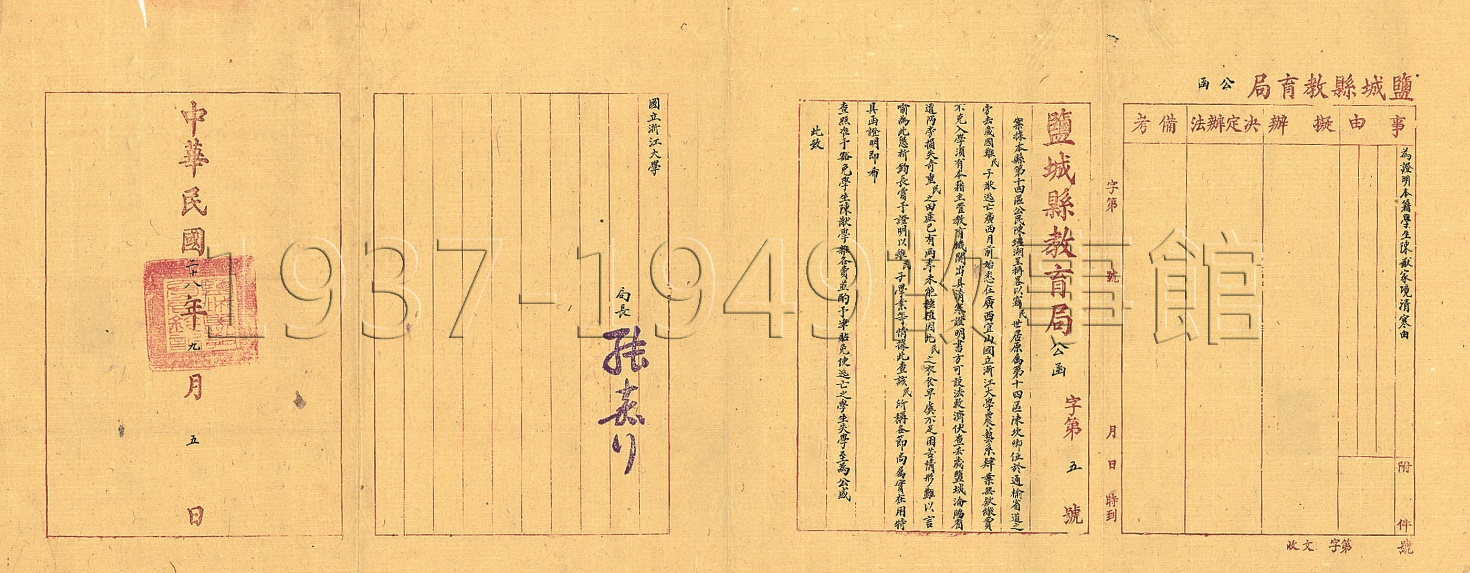 鹽城縣教育局公函
事由
擬辦
決定辦法
備考
為證明本籍學生陳猷家境清寒由
附件
號
收文 字第
字第 號
月 日 時到
鹽城縣教育局公函 字第五號
案據本縣第十四區公民陳 湖呈稱竊以窩民世居原為第十四區陳坎鄉位於通榆省道之
旁去歲國難民子猷逃亡廣西月前始悉在廣西宜山國立浙江大學農藝系肄業無欵繳費
不克入學須有本籍主管教育機關出具清寒證明書方可設法救濟伏查去歲鹽城淪陷省
道兩旁損失奇重民之田產已有兩季未能種植因此民之衣食早虞不足困苦情形難以言
喻為此懇祈鈞長賞予證明以維民子學業等情據此查該民所稱各節尚屬實在用特
具函證明即希
查照准予豁免學生陳猷學雜各費並酌予津貼免使逃亡之學生失學至為公感
此致
國立浙江大學
局長
中華民國二十八年九月五日
1937-1949故事館